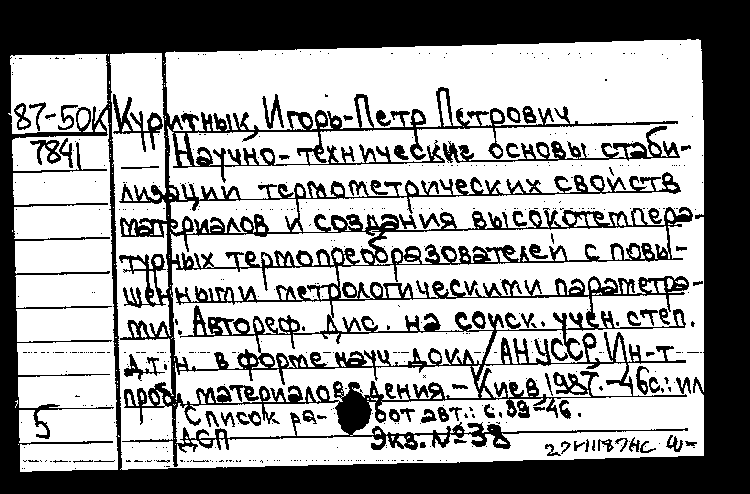 87-50К Куритнык, Игорь-Петр Петрович.
7841 Научно-технические основы стаби-
лизации термометрических свойств
материалов и создания высокотемпера-
турных термопреобразователей с повы-
шенными метрологическими параметра-
ми: Автореф. дис. на соиск. учен. степ.
д.т.н. в форме науч. докл. / АН УССР. Ин-т
пробл. материаловедения. - Киев, 1987. - 46с.: ил
5 Список ра- бот авт.: с. 39-46.
ДСП Экз. №38